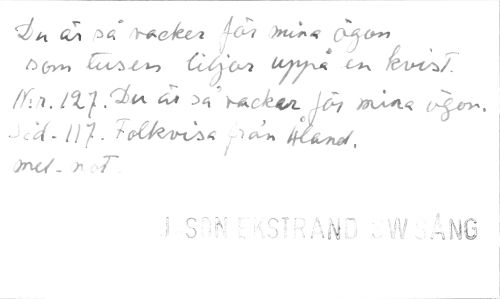 Du är så vacker för mina ögon
som tusen liljor uppå en kvist.
N:r. 127. Du är så vacker för mina ögon.
Sid. 117. Folkvisa från Åland.
mel. not.
J SON EKSTRAND SW SÅNG